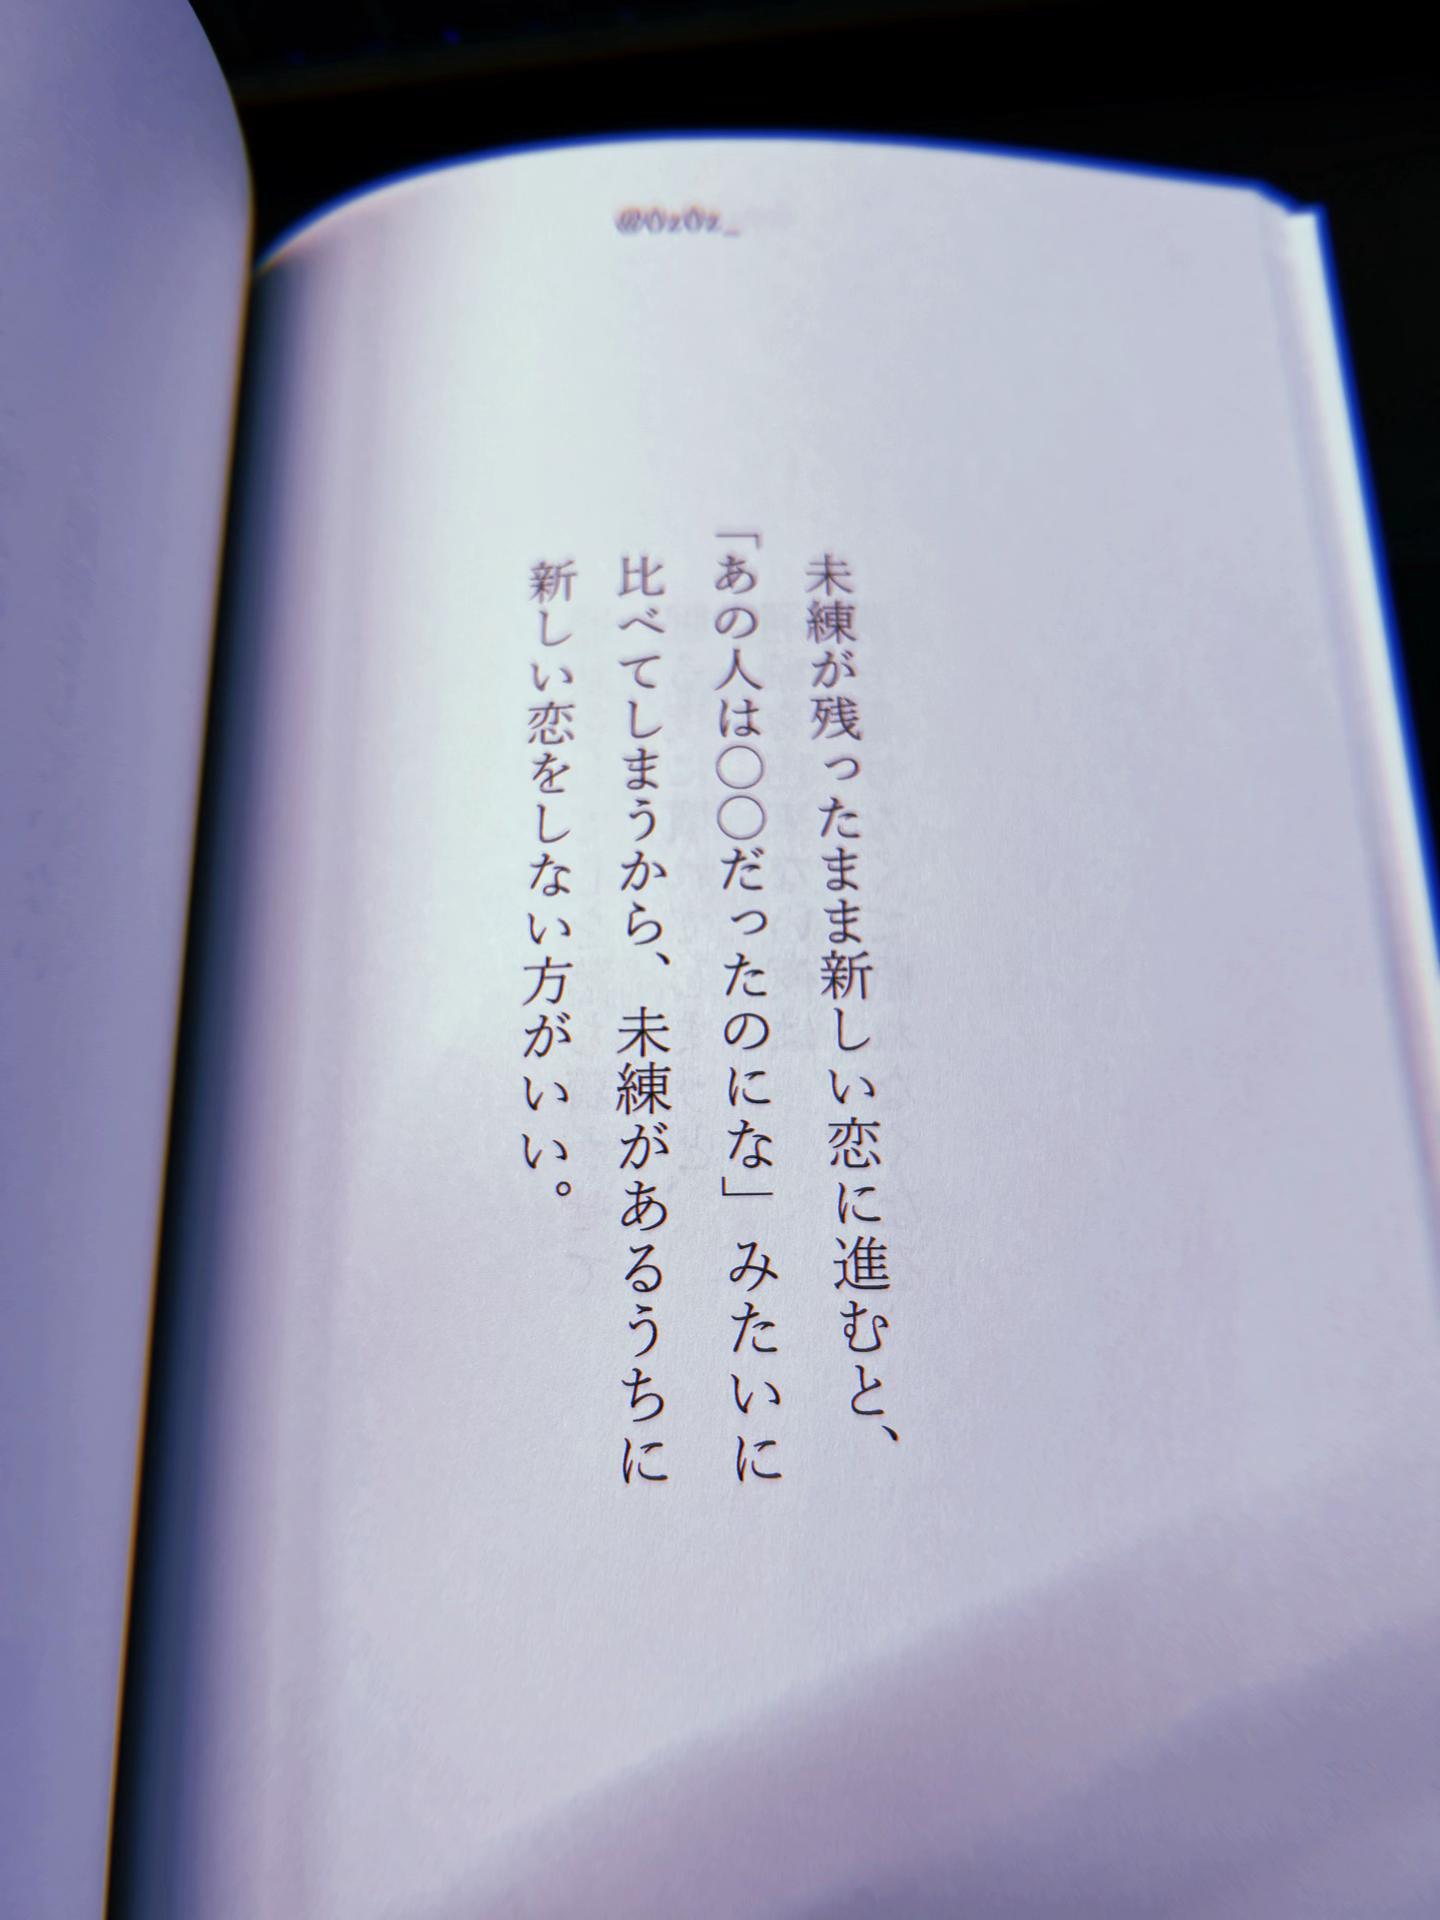 @0z0z_
未練が残ったまま新しい恋に進むと、
「あの人は〇〇だったのにな」みたいに
比べてしまうから、未練があるうちに
新しい恋をしない方がいい。